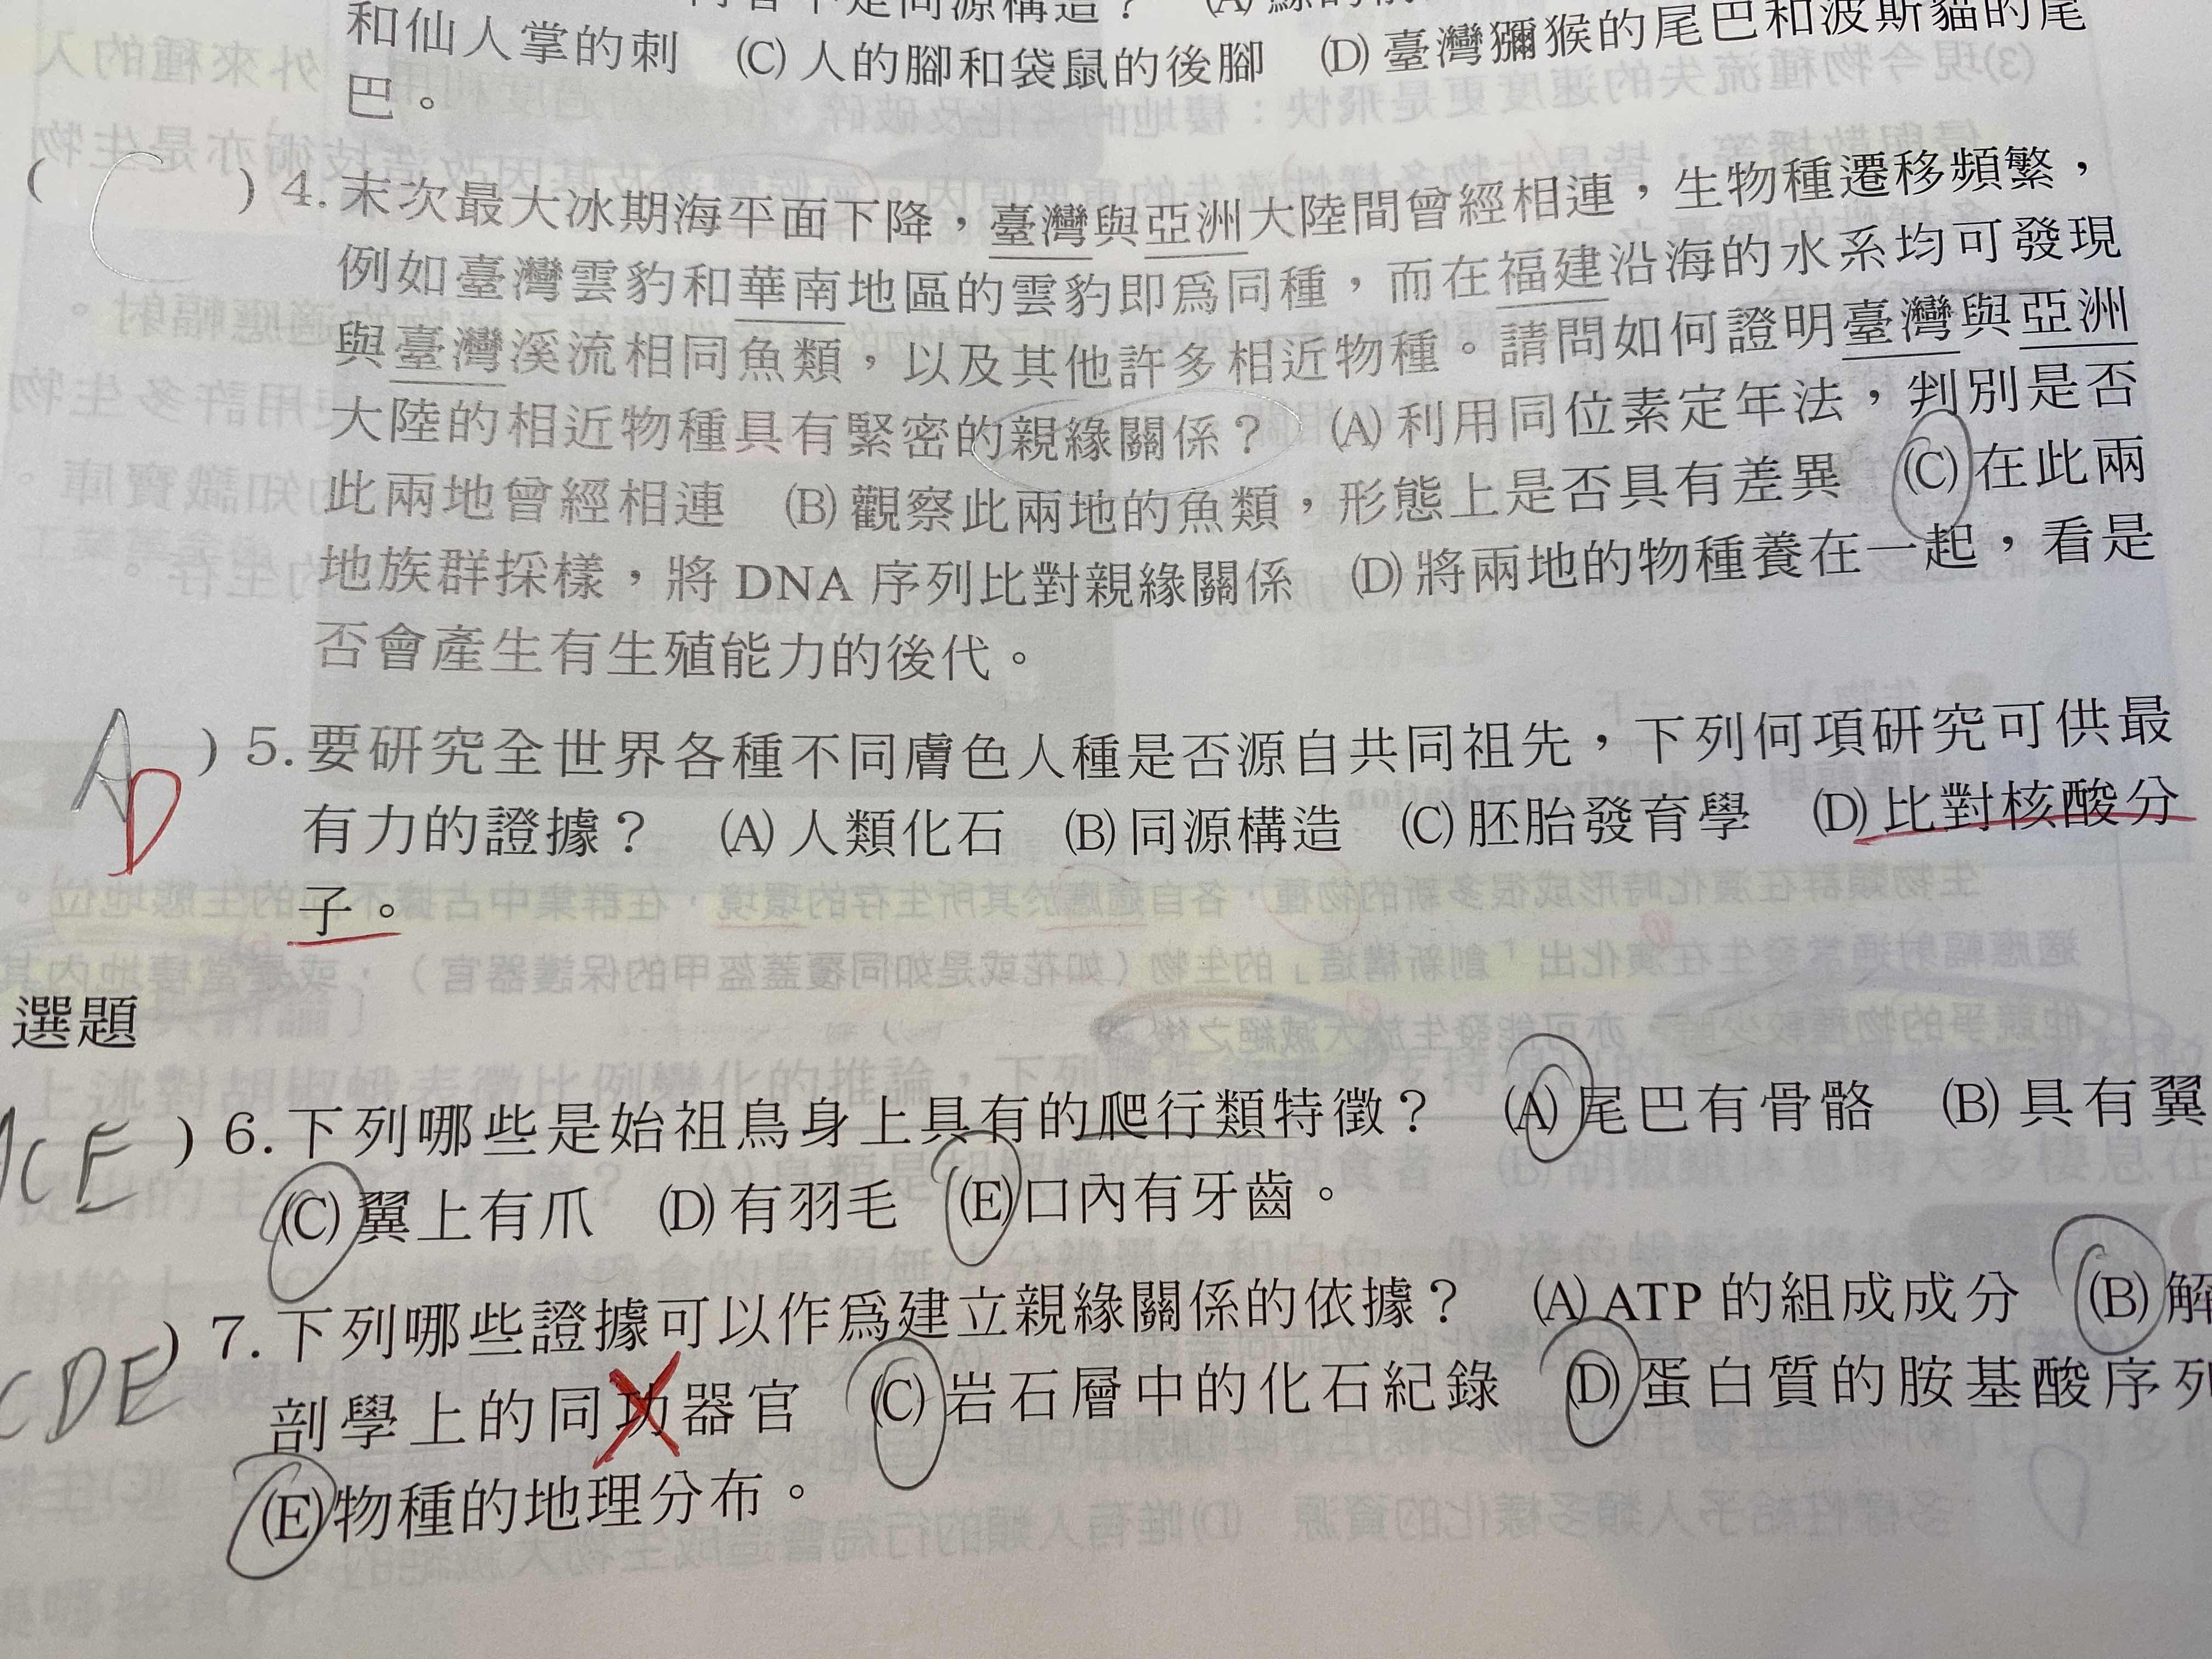 和仙人掌的刺 (C)人的腳和袋鼠的後腳 (D)臺灣獼猴的尾巴和波斯貓的尾
巴。
( C ) 4. 末次最大冰期海平面下降，臺灣與亞洲大陸間曾經相連，生物種遷移頻繁，
例如臺灣雲豹和華南地區的雲豹即為同種，而在福建沿海的水系均可發現
與臺灣溪流相同魚類，以及其他許多相近物種。請問如何證明臺灣與亞洲
大陸的相近物種具有緊密的親緣關係？ (A)利用同位素定年法，判別是否
此兩地曾經相連 (B)觀察此兩地的魚類，形態上是否具有差異 (C)在此兩
地族群採樣，將 DNA 序列比對親緣關係 (D)將兩地的物種養在一起，看是
否會產生有生殖能力的後代。
A D ) 5. 要研究全世界各種不同膚色人種是否源自共同祖先，下列何項研究可供最
有力的證據？ (A)人類化石 (B)同源構造 (C)胚胎發育學 (D)比對核酸分
子。
選題
ACE ) 6. 下列哪些是始祖鳥身上具有的爬行類特徵？ (A)尾巴有骨骼 (B)具有翼
(C)翼上有爪 (D)有羽毛 (E)口內有牙齒。
CDE ) 7. 下列哪些證據可以作為建立親緣關係的依據？ (A)ATP 的組成成分 (B)解
剖學上的同功器官 (C)岩石層中的化石紀錄 (D)蛋白質的胺基酸序列
(E)物種的地理分布。